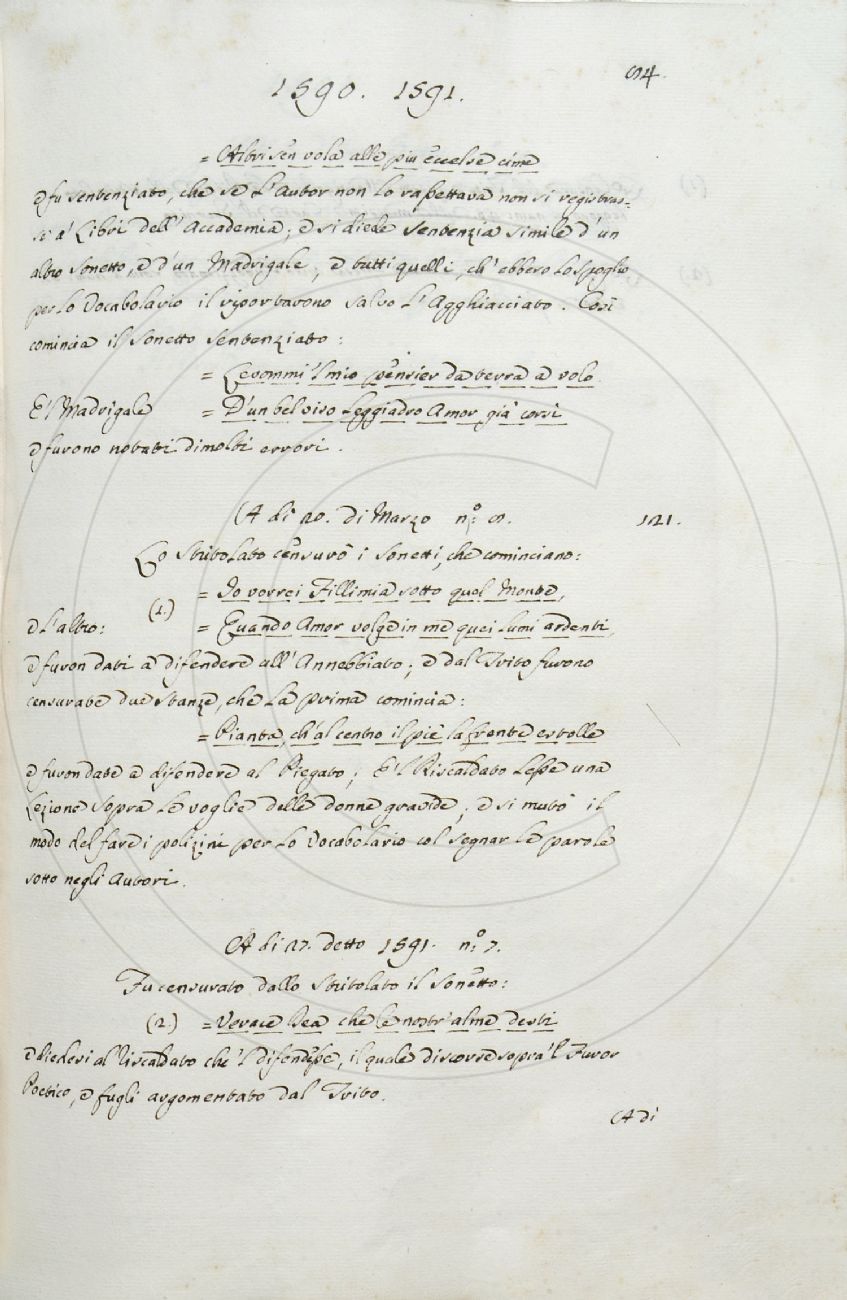 94.
1590. 1591.
= Altri sen vola alle più eccelse cime
e fu sentenziato, che se l'Autor non lo rassettava non si registras=
se a' Libri dell'Accademia; e si diede sentenzia simile d'un
altro Sonetto, e d'un Madrigale; e tutti quelli, ch'ebbero lo spoglio
per lo Vocabolario il riportarono salvo l'Agghiacciato. Così
comincia il Sonetto sentenziato:
= Levommi 'l mio pensier da terra a volo
E 'l Madrigale = D'un bel viso leggiadro Amor già corsi
e furono notati di molti errori.
A dì 20. di Marzo n.o 6. 121.
Lo Stritolato censurò i Sonetti, che cominciano:
= Io vorrei Filli mia sotto quel Monte,
e l'altro: (1.) = Quando Amor volge in me quei lumi ardenti,
e furon dati a difendere all'Annebbiato; e dal Trito furono
censurate due stanze, che la prima comincia:
= Pianta, ch'al centro il piè la fronte estolle
e furon date a difendere al Piegato; E 'l Riscaldato lesse una
Lezione sopra le voglie delle donne gravide; e si mutò il
modo del fare i polizini per lo Vocabolario col segnar le parole
sotto negli Autori.
A dì 27. detto 1591. n.o 7.
Fu censurato dallo Stritolato il Sonetto:
(2.) = Verace Dea che le nostr'alme desti
e diedesi al Riscaldato che 'l difendesse, il quale discorre sopra 'l Furor
Poetico, e fugli argomentato dal Trito.
A dì